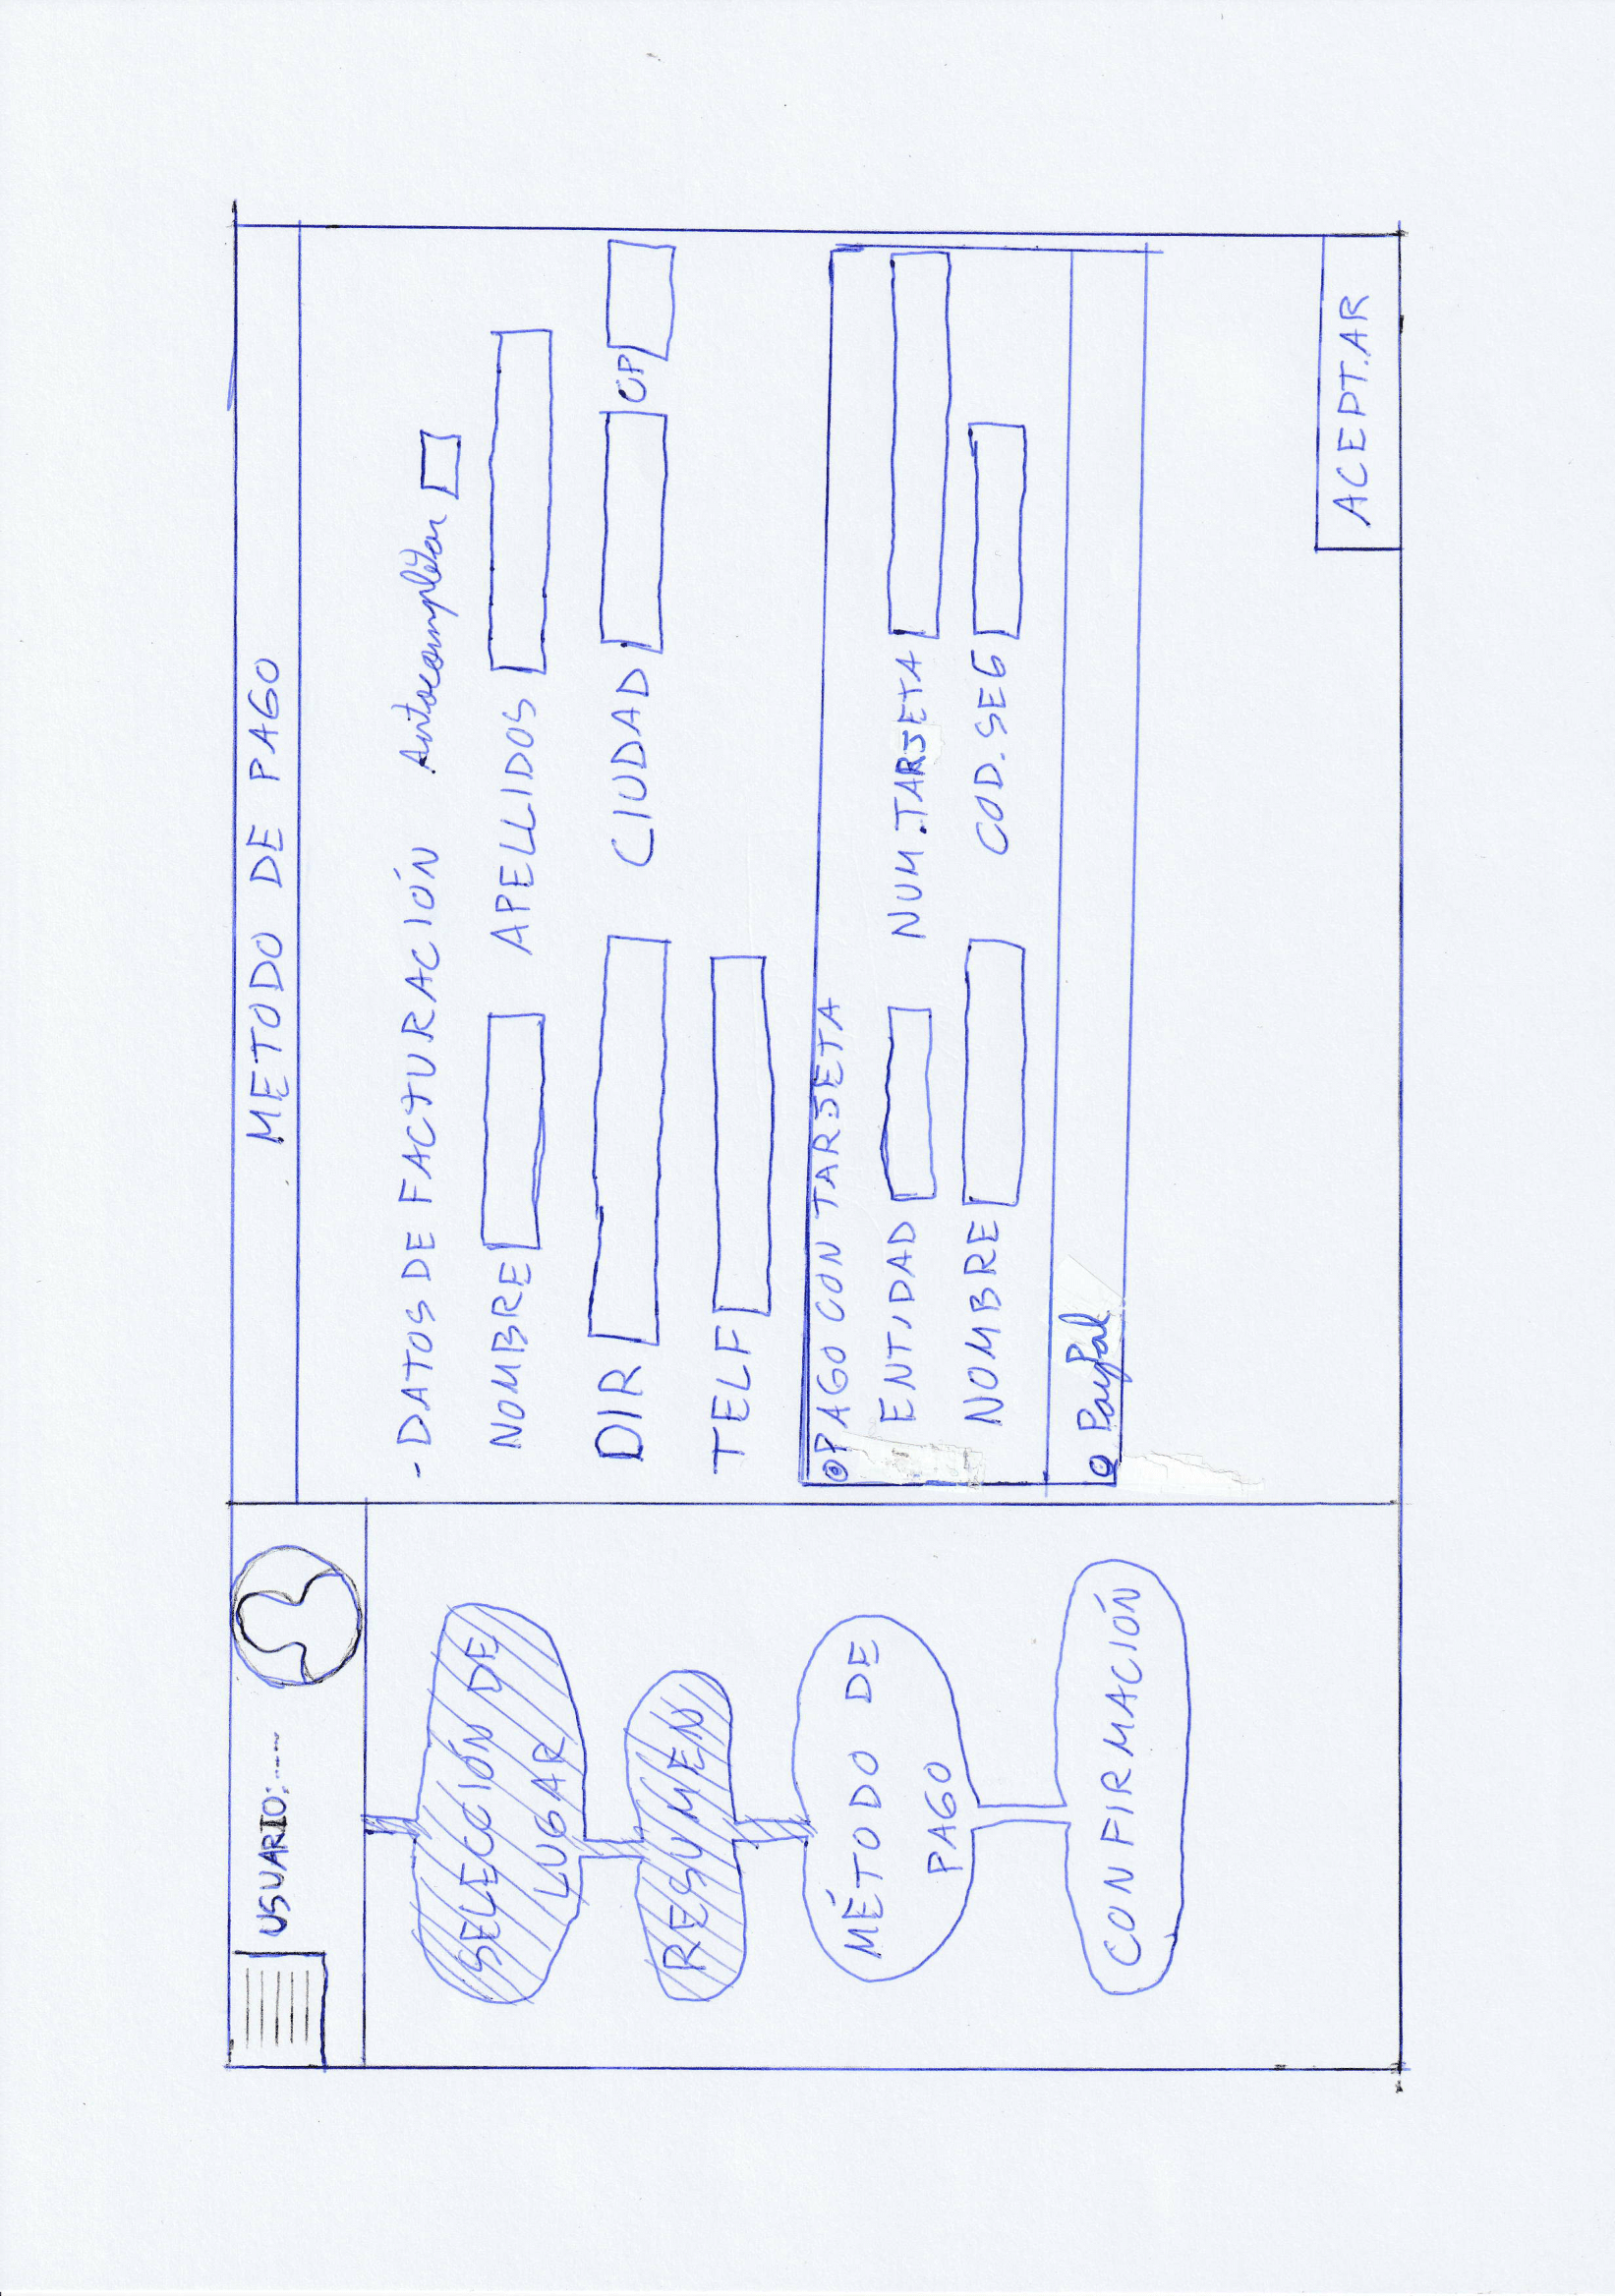 USUARIO:----
SELECCIÓN DE
LUGAR
RESUMEN
MÉTODO DE
PAGO
CONFIRMACIÓN
METODO DE PAGO
- DATOS DE FACTURACIÓN Autocompletar
NOMBRE APELLIDOS
DIR CIUDAD CP
TELF
PAGO CON TARJETA
ENTIDAD NUM.TARJETA
NOMBRE COD.SEG
PayPal
ACEPTAR